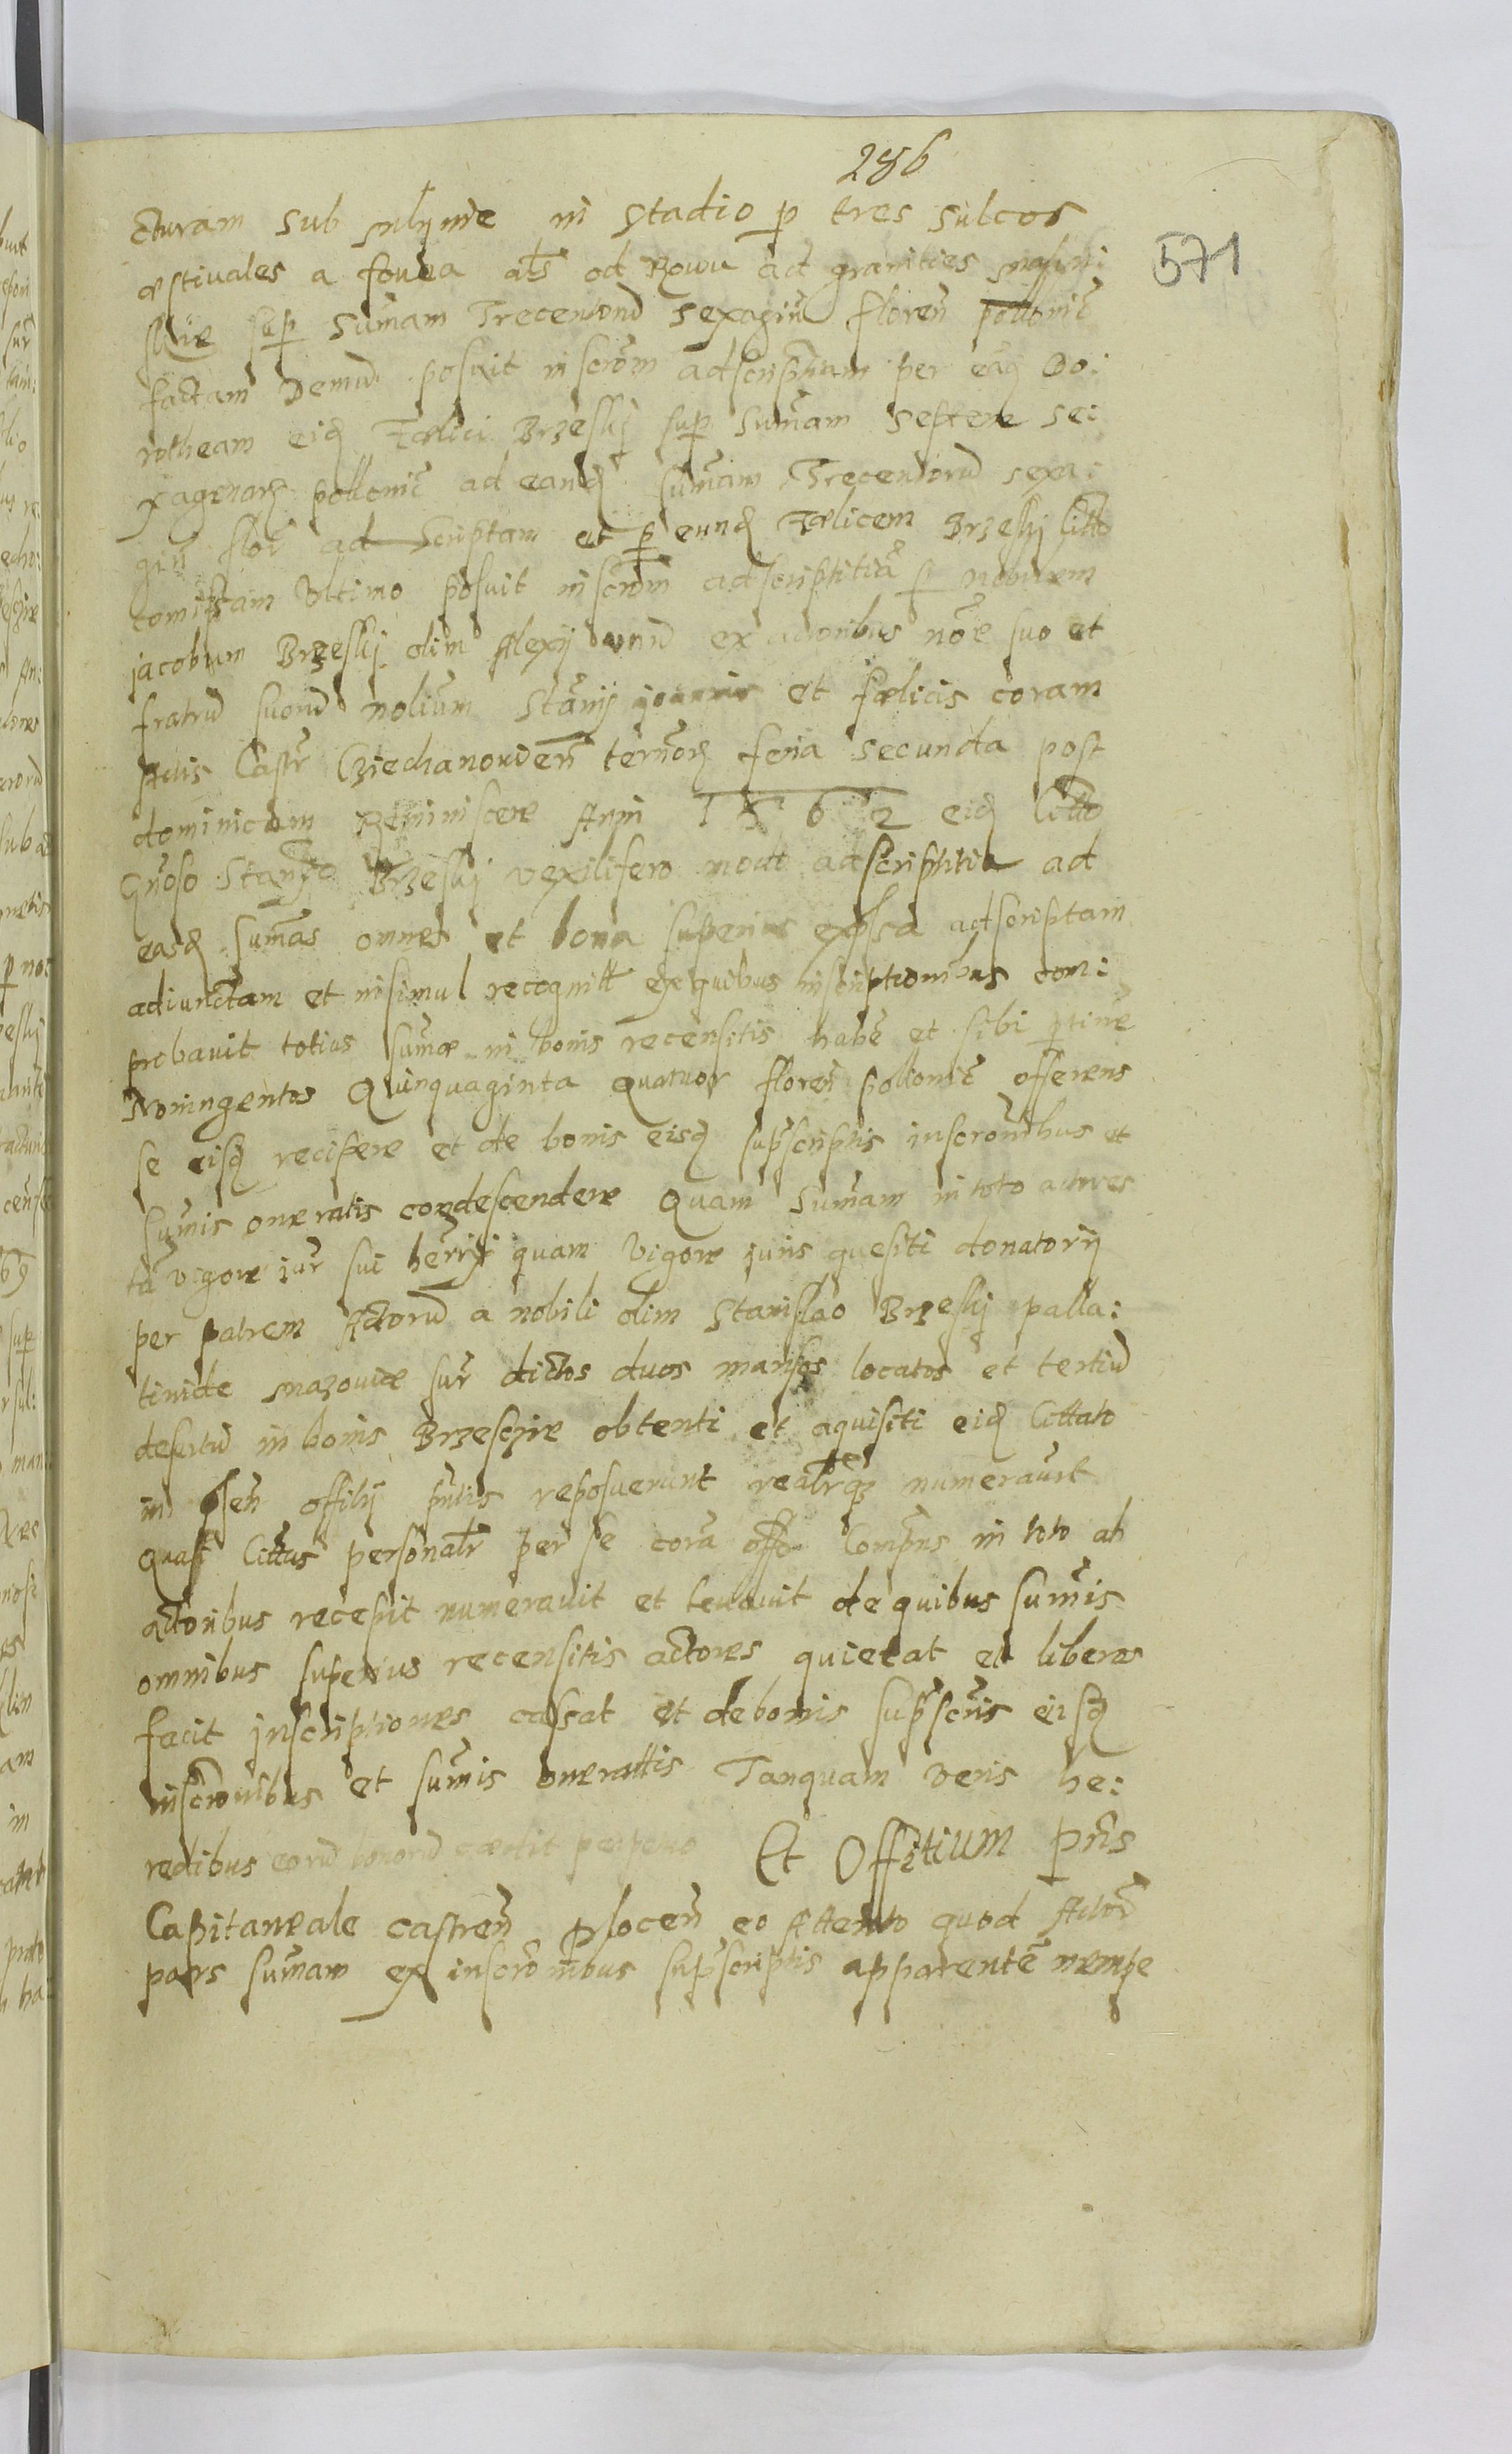 286
571
cturam sub mlynie in stadio p tres sulcos
æstiuales a fouea als od Rowu ad granities
super sumam Trecentorū sexagin floren pollonic
factam Demū posuit inscrom adscriptitiam per eaq Do:
rotheam eiq Fælici Brzeskj sup sumam septem se:
xagenarq pollonic ad eandq sumam Trecentorū sexa:
gin flor ad scriptam et p eundq Fælicem Brzeskj Citto
Ultimo posuit inscrom adscriptitiā p nobilem
jacobum Brzeskj olim Alexij unū ex actoribus noē suo et
fratrū suorū nolium Stanij joannis et fælicis coram
Actis Castr Cziechanouien ternorq feria secunda post
dominicam Reminiscere Anni 1562 eiq Citto
Gnoso Stanio Brzeskj vexilifero modo adscriptitia ad
easq sumas omnes et bona superius expsa adscriptam
adiunctam et insimul recognitt ex quibus inscriptionibus com:
probauit totius sumæ in bonis recensitis habē et sibi ptinē
Noningentos Quinquaginta Quatuor floren pollonic offerens
se eisq recipere et de bonis eisq supscriptis inscronibus et
sumis oneratis condescendere Quam sumam in toto actores
tā vigore jur sui herrii quam vigore juris quesiti donatorij
per patrem Actorū a nobili olim Stanislao Brzeskj palla:
tinide Mazouiæ sur dictos duos mansos locatos et tertiū
desertū in bonis Brzesczie obtenti et aquisiti eiq Cittato
in psen offitij pntis reposuerunt realrqz numerauit
Quas Cittus personalr per se corā offo Comprns in toto ab
actoribus recepit numerauit et leuauit de quibus sumis
omnibus superius recensitis actores quietat et liberos
facit jnscriptiones cassat et de bonis supscris eisq
inscronibus et sumis oneratis Tanquam veris he:
redibus eorū bonorū cædit perpetuo Et Offitium prns
Capitaneale castren plocen eo Attento quod Actor
pars sumam ex inscronibus supscriptis apparentē nempe